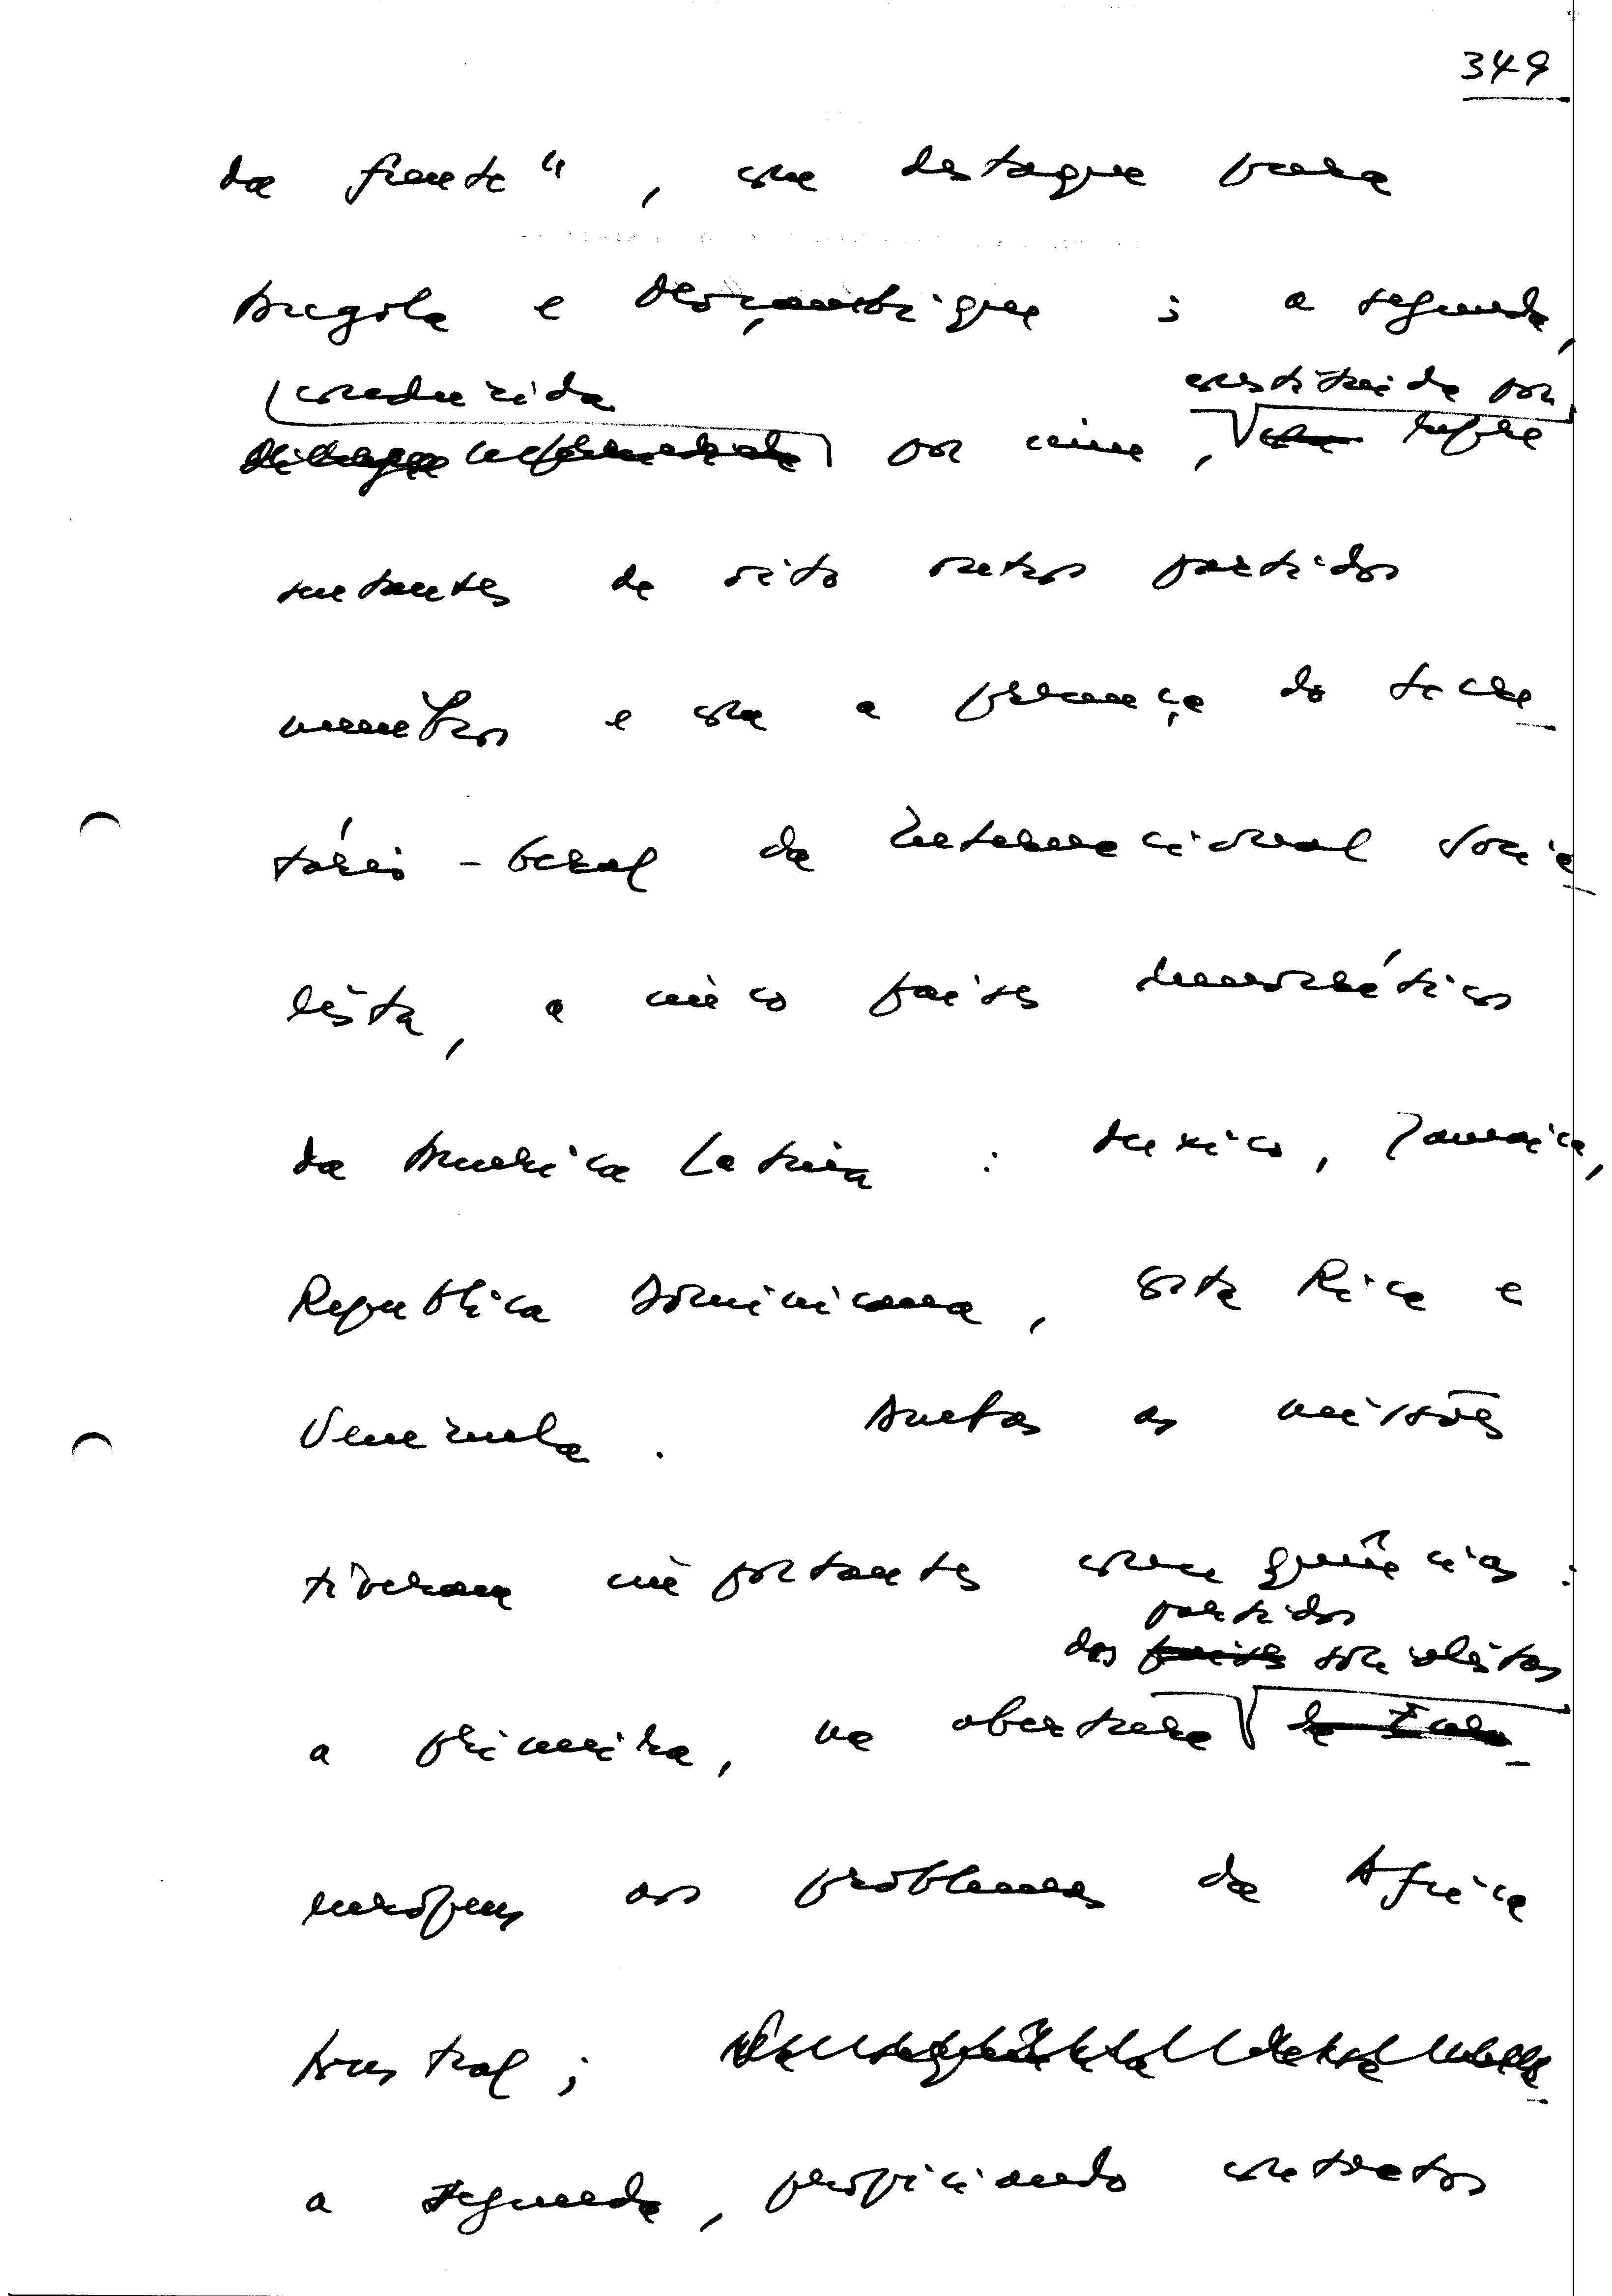 349
da frente", com destaque para
Angola e Moçambique; a segunda,
conduzida constituída por
por mim, repre
sentantes de oito outros partidos
membros e com a presença do secre_
tário-Geral da Internacional Socia_
lista, a cinco países democráticos
da America Latina: Mexico, Jamaica,
Republica Dominicana, Costa Rica e
Venezuela. Ambas as missões
tiveram importantes consequências:
partidos
dos países socialistas
a primeira, na abertura
europeus aos problemas da Africa
Austral;
a segunda, propiciando contactos